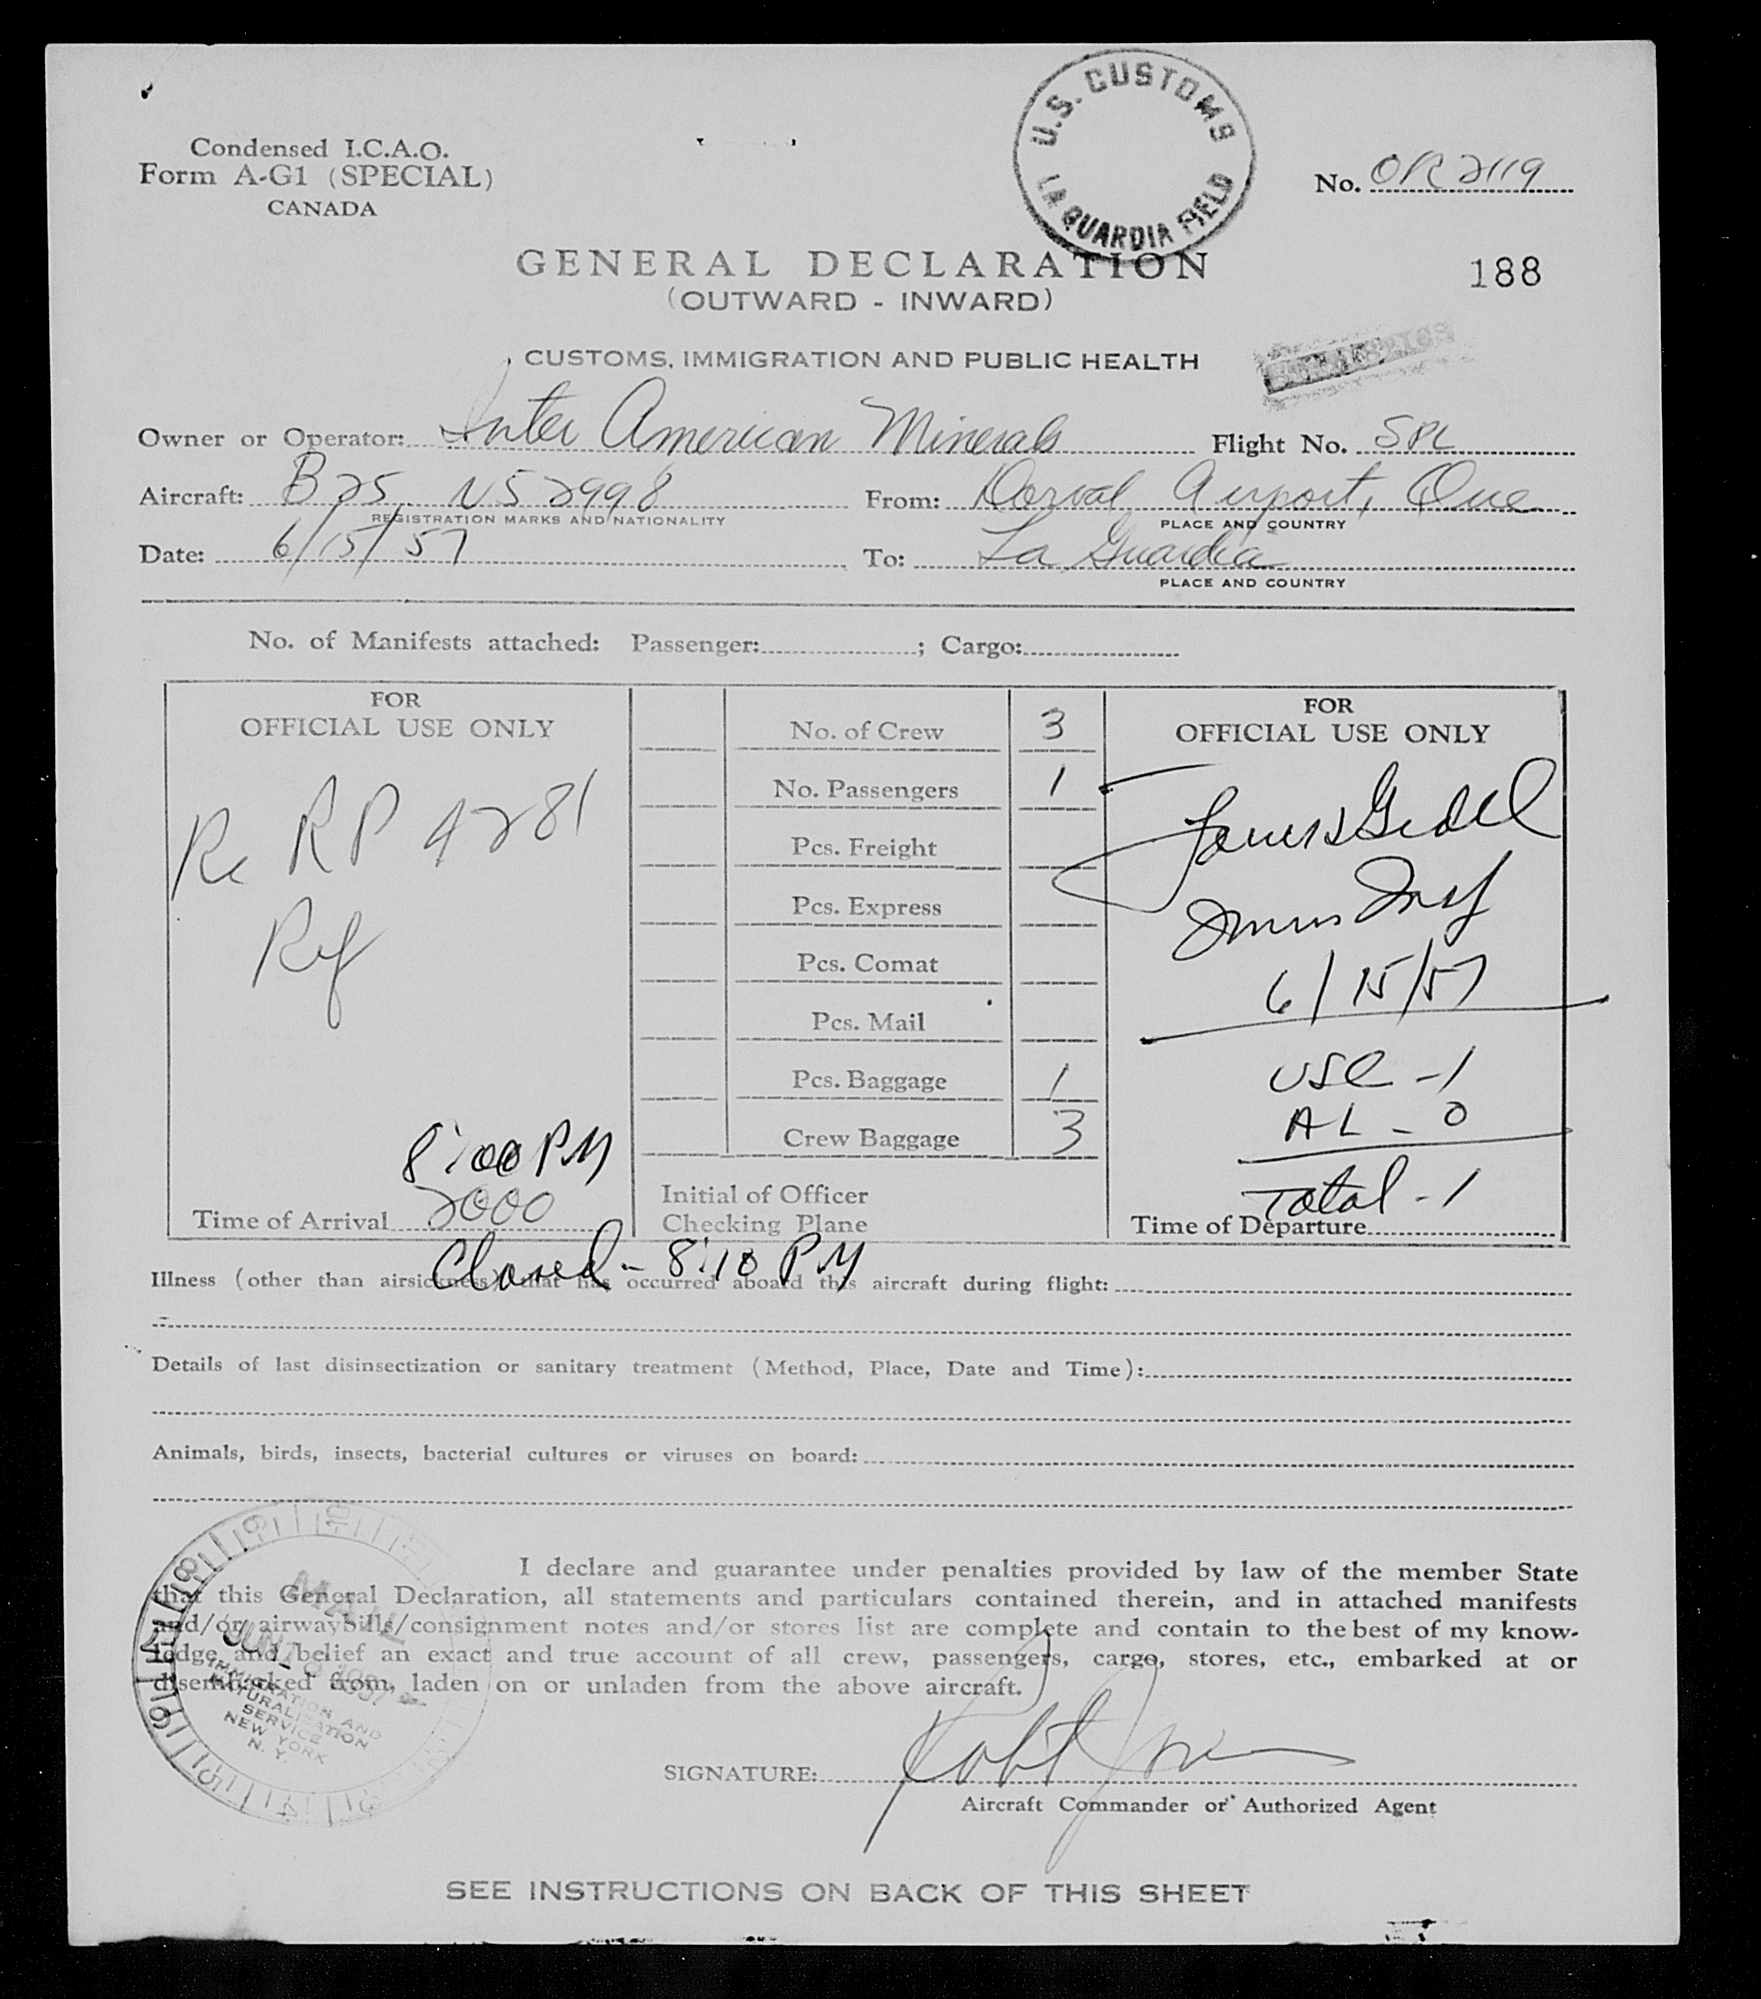 U.S. CUSTOMS
LA GUARDIA FIELD
Condensed I.C.A.O.
Form A-G1 (SPECIAL)
CANADA
No. OR 2119
GENERAL DECLARATION
(OUTWARD - INWARD)
188
CUSTOMS, IMMIGRATION AND PUBLIC HEALTH
Owner or Operator: Inter American Minerals Flight No. SPL
Aircraft: B25 N52998 From: Dorval Airport, Que
REGISTRATION MARKS AND NATIONALITY PLACE AND COUNTRY
Date: 6/15/57 To: La Guardia
PLACE AND COUNTRY
No. of Manifests attached: Passenger: ; Cargo:
FOR
OFFICIAL USE ONLY
Re RP 4281
8:00 PM
Time of Arrival 2000
Closed - 8:10 PM
No. of Crew 3
No. Passengers 1
Pcs. Freight
Pcs. Express
Pcs. Comat
Pcs. Mail
Pcs. Baggage 1
Crew Baggage 3
Initial of Officer
Checking Plane
FOR
OFFICIAL USE ONLY
6/15/57
USC - 1
AL - 0
Total - 1
Time of Departure
Illness (other than airsickness) that has occurred aboard this aircraft during flight:
Details of last disinsectization or sanitary treatment (Method, Place, Date and Time):
Animals, birds, insects, bacterial cultures or viruses on board:
I declare and guarantee under penalties provided by law of the member State
that this General Declaration, all statements and particulars contained therein, and in attached manifests
and/or airwaybills/consignment notes and/or stores list are complete and contain to the best of my know-
ledge and belief an exact and true account of all crew, passengers, cargo, stores, etc., embarked at or
disembarked from, laden on or unladen from the above aircraft.
MAIL
IMMIGRATION AND
NATURALIZATION
SERVICE
NEW YORK
N. Y.
SIGNATURE:
Aircraft Commander or Authorized Agent
SEE INSTRUCTIONS ON BACK OF THIS SHEET